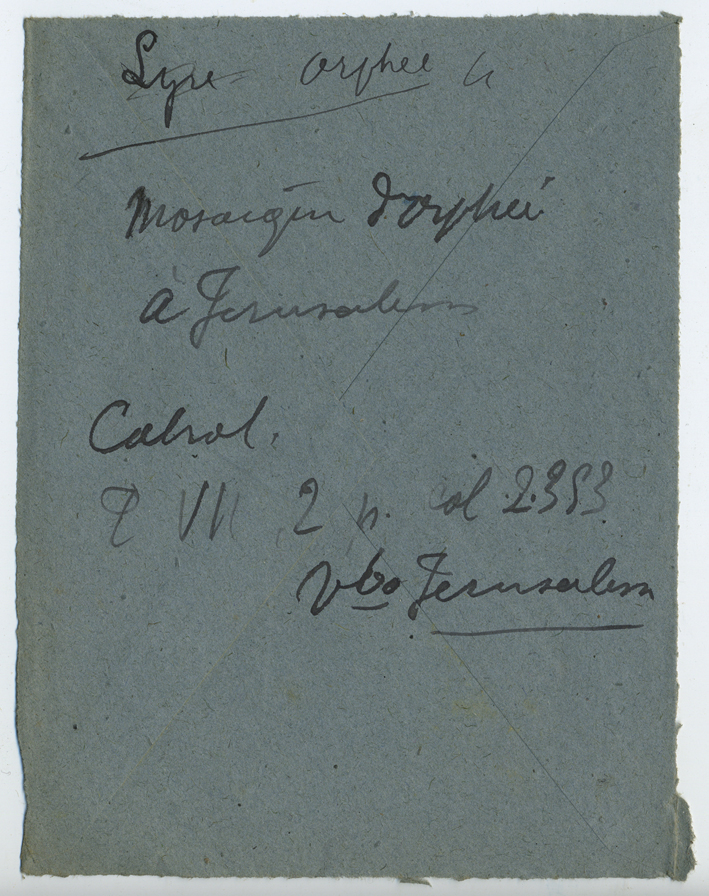 Lyre Orphée
Mosaique d'Orphée
a Jerusalem
Cabrol.
T VII, 2 p. col 2.353
Vbo Jerusalem